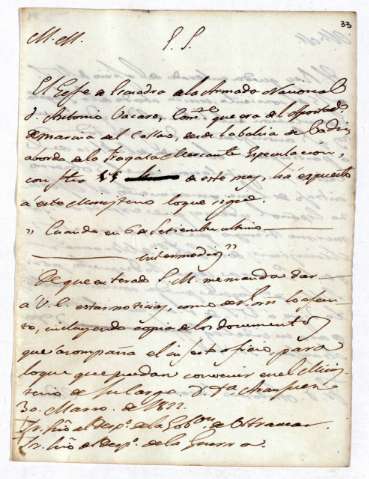 33
M. M. E. S.
El Gefe de Escuadra de la Armada Nacional
D. Antonio Vacaro, Com.te que era del Apostadero
de marina del Callao, desde la bahia de Cadiz
abordo de la fragata Mercante Especulacion,
con fha de este mes, ha expuesto
a este Ministerio lo que sigue
" Cuando en 6 de Setiembre ultimo
intermedios"
De que enterado S. M. me manda dar
a V. E. estas noticias, como de Rl. orn lo efectuo,
incluyendo copia de los documentos
que acompaña el oficio para
lo que puedan convenir en el Minis
terio de su cargo. D.s g.a Aranjuez
30. Marzo de 1822
Sr. Srio del Desp.o de la Gob.on de Ultramar
Sr. Srio del Desp.o de la Guerra.